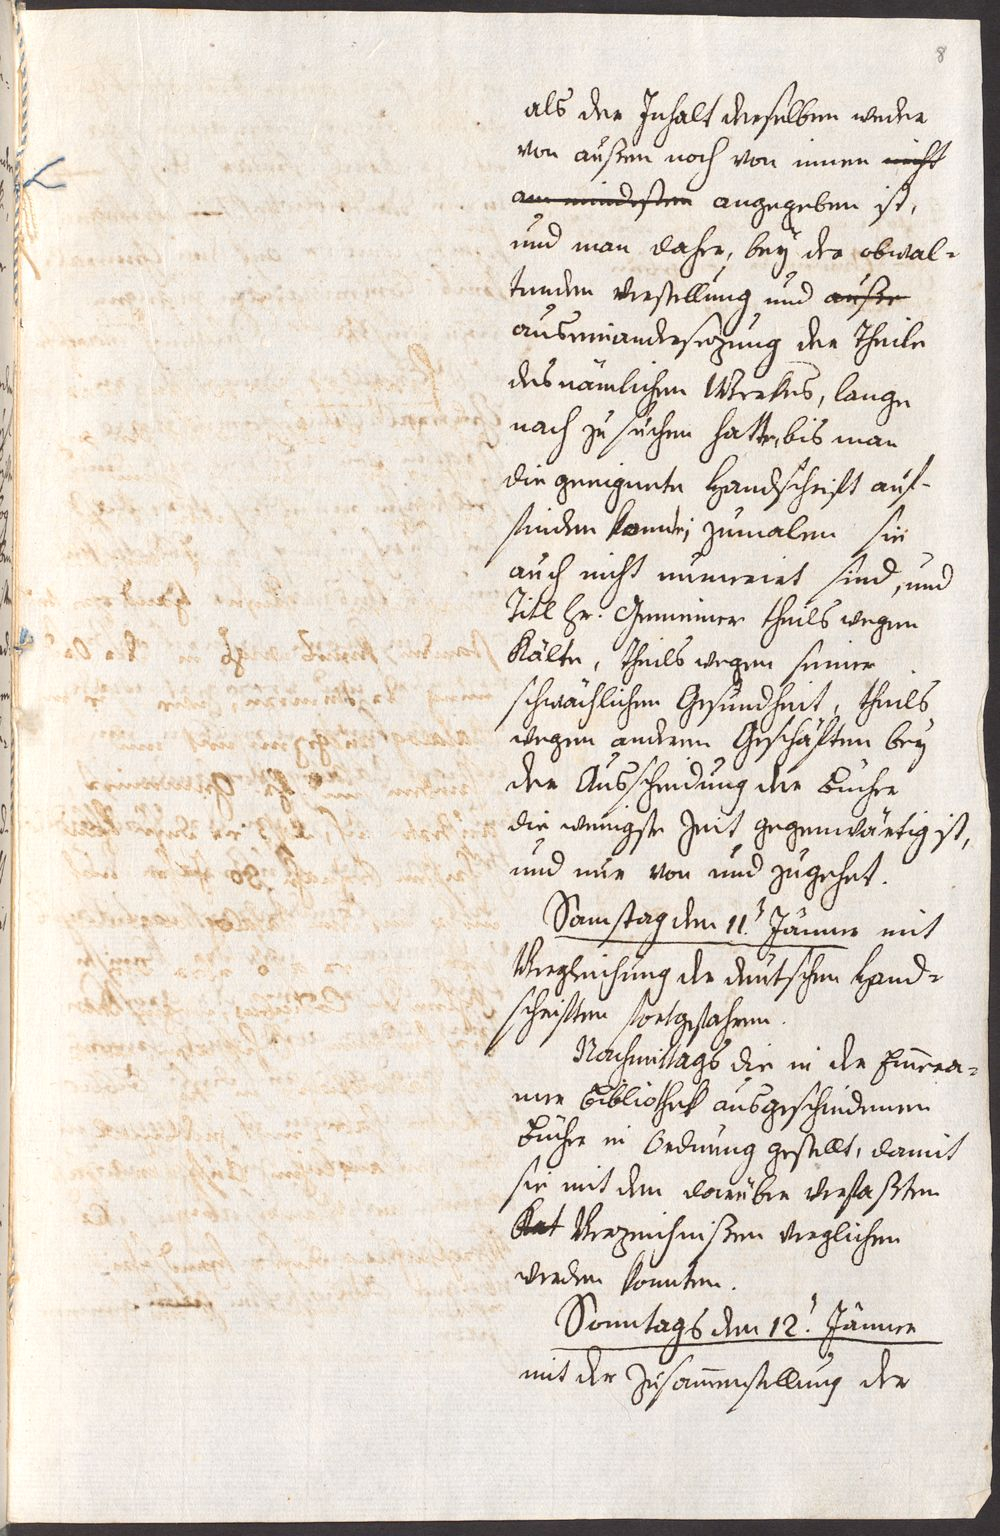 8
als der Inhalt derselben weder
von außen noch von innen nicht
am mindesten angegeben ist,
und man daher, bey der obwal-
tenden Verstellung und auße
auseinandersezung der Theile
des nämlichen Werkes, lange
nach zu suchen hatte, bis man
die geeignete Handschrift auf-
finden konnte; zumalen sie
auch nicht numerirt sind, und
Titl Hr. Gemeiner theils wegen
Kälte, theils wegen seiner
schwächlichen Gesundheit, theils
wegen anderen Geschäften bey
der Ausscheidung der Bücher
die wenigste Zeit gegenwärtig ist,
und nur von und zugehet.
Samstag den 11.t Jänner mit
Vergleichung der deutschen Hand-
schriften fortgefahren.
Nachmittags die in der Em̅era-
mer Bibliothek ausgeschiedenen
Bücher in Ordnung gestellt, damit
sie mit den darüber verfaßten
Kat Verzeichnißen verglichen
werden konnten.
Sonntags den 12.t Jänner
mit der Zusam̅enstellung der